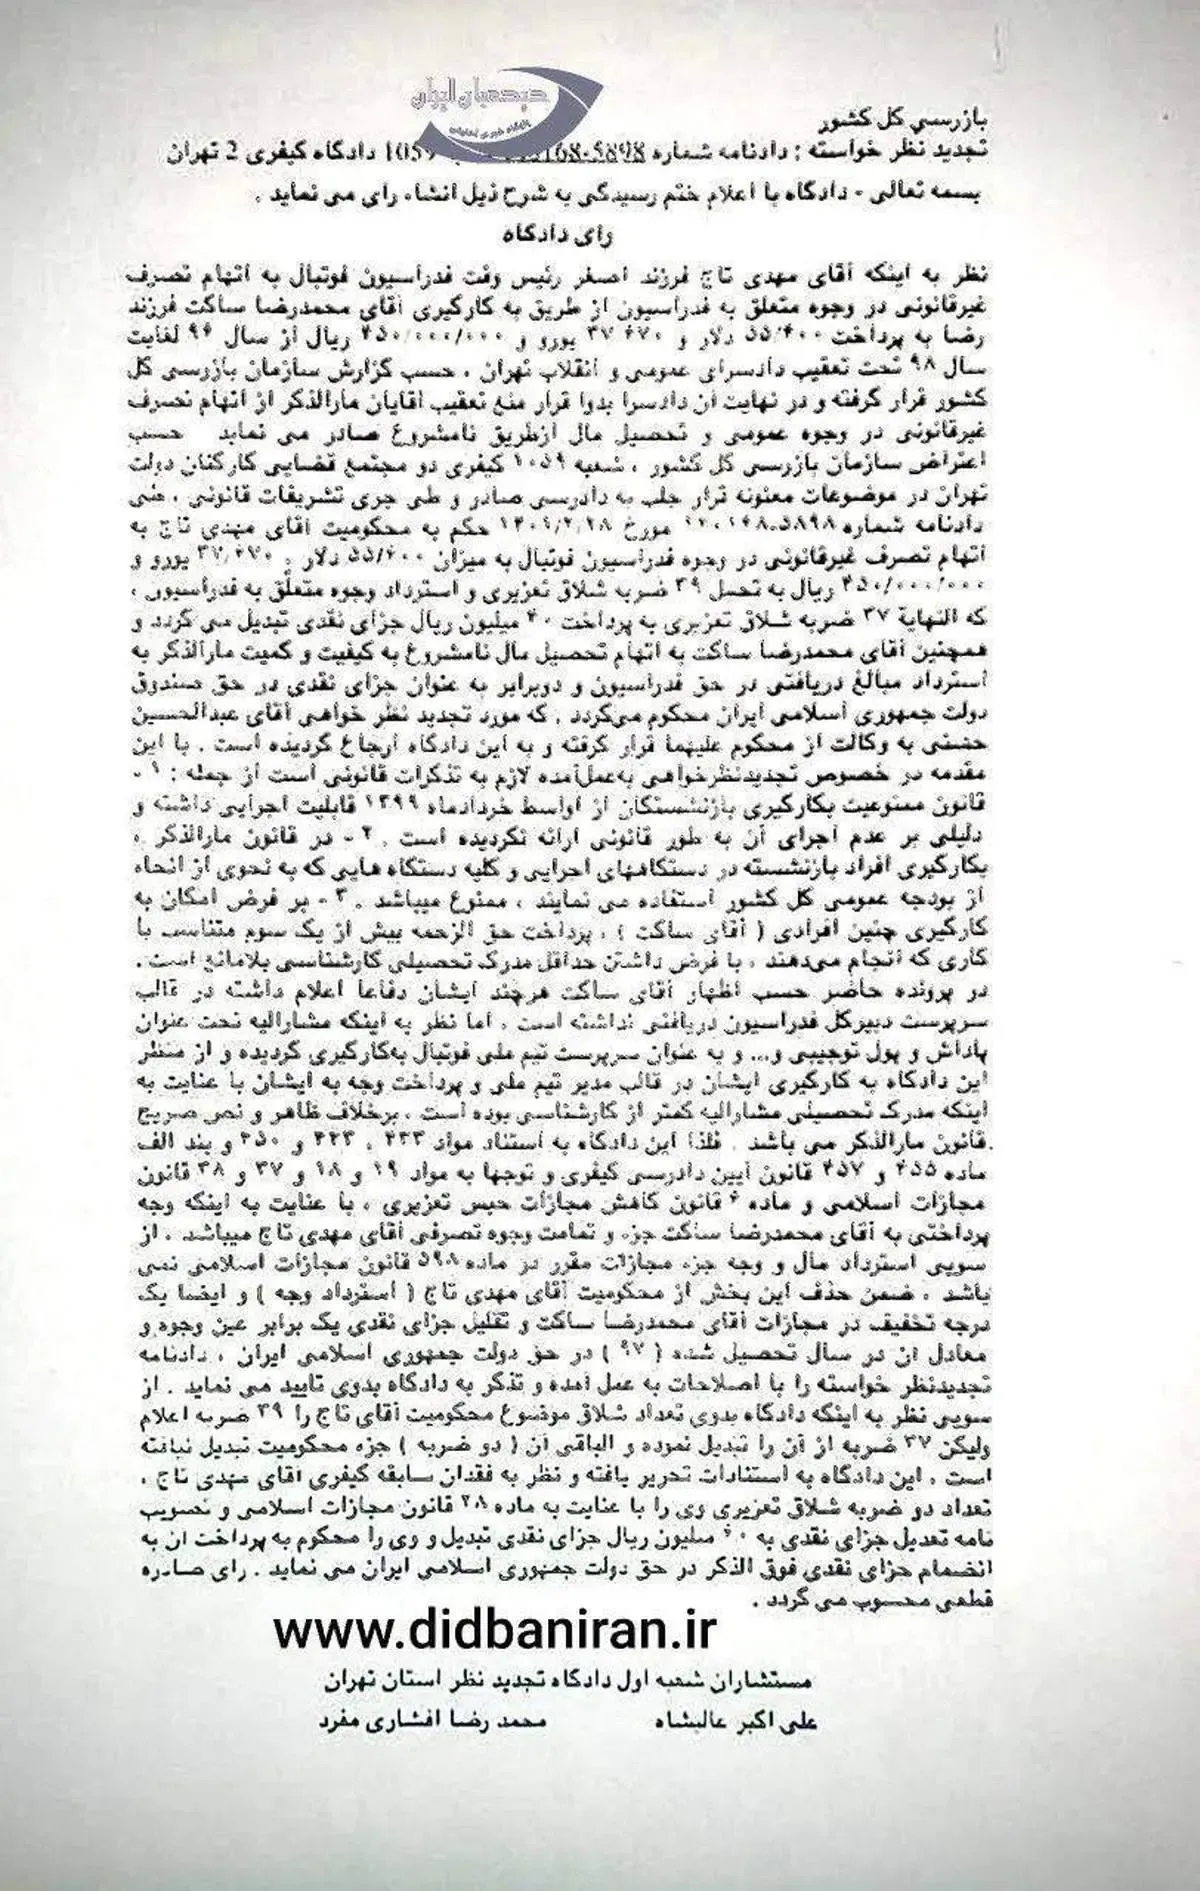 دیدهبان ایران
بازرسی کل کشور
تجدید نظر خواسته : دادنامه شماره 168-5898 1059 دادگاه کیفری 2 تهران
بسمه تعالی - دادگاه با اعلام ختم رسیدگی به شرح ذیل انشاء رای می نماید .
رای دادگاه
نظر به اینکه آقای مهدی تاج فرزند اصغر رئیس وقت فدراسیون فوتبال به اتهام تصرف
غیرقانونی در وجوه متعلق به فدراسیون از طریق به کارگیری آقای محمدرضا ساکت فرزند
رضا به پرداخت ۵۵/۴۰۰ دلار و ۳۷ ۶۷۰ یورو و ۴۵۰/۰۰۰/۰۰۰ ریال از سال ۹۶ لغایت
سال ۹۸ تحت تعقیب دادسرای عمومی و انقلاب تهران ، حسب گزارش سازمان بازرسی کل
کشور قرار گرفته و در نهایت آن دادسرا بدوا قرار منع تعقیب آقایان مارالذکر از اتهام تصرف
غیرقانونی در وجوه عمومی و تحصیل مال ازطریق نامشروع صادر می نماید حسب
اعتراض سازمان بازرسی کل کشور ، شعبه ۱۰۵۹ کیفری دو مجتمع قضایی کارکنان دولت
تهران در موضوعات معنونه قرار جلب به دادرسی صادر و طی جری تشریفات قانونی ، طی
دادنامه شماره ۱۲۰۱۶۸۰۵۸۹۸ مورخ ۱۴۰۱/۲/۲۸ حکم به محکومیت آقای مهدی تاج به
اتهام تصرف غیرقانونی در وجوه فدراسیون فوتبال به میزان ۵۵/۶۰۰ دلار و ۳۷/۶۷۰ یورو و
۴۵۰/۰۰۰/۰۰۰ ریال به تحمل ۳۹ ضربه شلاق تعزیری و استرداد وجوه متعلق به فدراسیون ،
که النهایة ۳۷ ضربه شلاق تعزیری به پرداخت ۴۰ میلیون ریال جزای نقدی تبدیل می گردد و
همچنین آقای محمدرضا ساکت به اتهام تحصیل مال نامشروع به کیفیت و کمیت مارالذکر به
استرداد مبالغ دریافتی در حق فدراسیون و دوبرابر به عنوان جزای نقدی در حق صندوق
دولت جمهوری اسلامی ایران محکوم می‌گردد . که مورد تجدید نظر خواهی آقای عبدالحسین
به وکالت از محکوم علیهما قرار گرفته و به این دادگاه ارجاع گردیده است . با این
مقدمه در خصوص تجدیدنظرخواهی به‌عمل‌آمده لازم به تذکرات قانونی است از جمله : ۱ -
قانون ممنوعیت بکارگیری بازنشستگان از اواسط خردادماه ۱۳۹۹ قابلیت اجرایی داشته و
دلیلی بر عدم اجرای آن به طور قانونی ارائه نگردیده است . ۲ - در قانون مارالذکر ،
بکارگیری افراد بازنشسته در دستگاههای اجرایی و کلیه دستگاه هایی که به نحوی از انحاء
از بودجه عمومی کل کشور استفاده می نمایند ، ممنوع میباشد . ۳ - بر فرض امکان به
کارگیری چنین افرادی ( آقای ساکت ) ، پرداخت حق الزحمه بیش از یک سوم متناسب با
کاری که انجام می‌دهند ، با فرض داشتن حداقل مدرک تحصیلی کارشناسی بلامانع است .
در پرونده حاضر حسب اظهار آقای ساکت هرچند ایشان دفاعا اعلام داشته در قالب
سرپرست دبیرکل فدراسیون دریافتی نداشته است ، اما نظر به اینکه مشارالیه تحت عنوان
پاداش و پول توجیبی و... و به عنوان سرپرست تیم ملی فوتبال به‌کارگیری گردیده و از منظر
این دادگاه به کارگیری ایشان در قالب مدیر تیم ملی و پرداخت وجه به ایشان با عنایت به
اینکه مدرک تحصیلی مشارالیه کمتر از کارشناسی بوده است ، برخلاف ظاهر و نص صریح
قانون مارالذکر می باشد . فلذا این دادگاه به استناد مواد ۴۳۳ ، ۴۴۳ و ۴۵۰ و بند الف
ماده ۴۵۵ و ۴۵۷ قانون آیین دادرسی کیفری و توجها به مواد ۱۹ و ۱۸ و ۳۷ و ۳۸ قانون
مجازات اسلامی و ماده ۶ قانون کاهش مجازات حبس تعزیری ، با عنایت به اینکه وجه
پرداختی به آقای محمدرضا ساکت جزء و تمامت وجوه تصرفی آقای مهدی تاج میباشد ، از
سویی استرداد مال و وجه جزء مجازات مقرر در ماده ۵۹۸ قانون مجازات اسلامی نمی
باشد ، ضمن حذف این بخش از محکومیت آقای مهدی تاج ( استرداد وجه ) و ایضا یک
درجه تخفیف در مجازات آقای محمدرضا ساکت و تقلیل جزای نقدی یک برابر عین وجوه و
معادل آن در سال تحصیل شده ( ۹۷ ) در حق دولت جمهوری اسلامی ایران ، دادنامه
تجدیدنظر خواسته را با اصلاحات به عمل آمده و تذکر به دادگاه بدوی تایید می نماید . از
سویی نظر به اینکه دادگاه بدوی تعداد شلاق موضوع محکومیت آقای تاج را ۳۹ ضربه اعلام
ولیکن ۳۷ ضربه از آن را تبدیل نموده و الباقی آن ( دو ضربه ) جزء محکومیت تبدیل نیافته
است ، این دادگاه به استنادات تحریر یافته و نظر به فقدان سابقه کیفری آقای مهدی تاج ،
تعداد دو ضربه شلاق تعزیری وی را با عنایت به ماده ۲۸ قانون مجازات اسلامی و تصویب
نامه تعدیل جزای نقدی به ۶۰ میلیون ریال جزای نقدی تبدیل و وی را محکوم به پرداخت آن به
انضمام جزای نقدی فوق الذکر در حق دولت جمهوری اسلامی ایران می نماید . رای صادره
قطعی محسوب می گردد .
www.didbaniran.ir
مستشاران شعبه اول دادگاه تجدید نظر استان تهران
علی اکبر عالیشاه محمد رضا افشاری مفرد